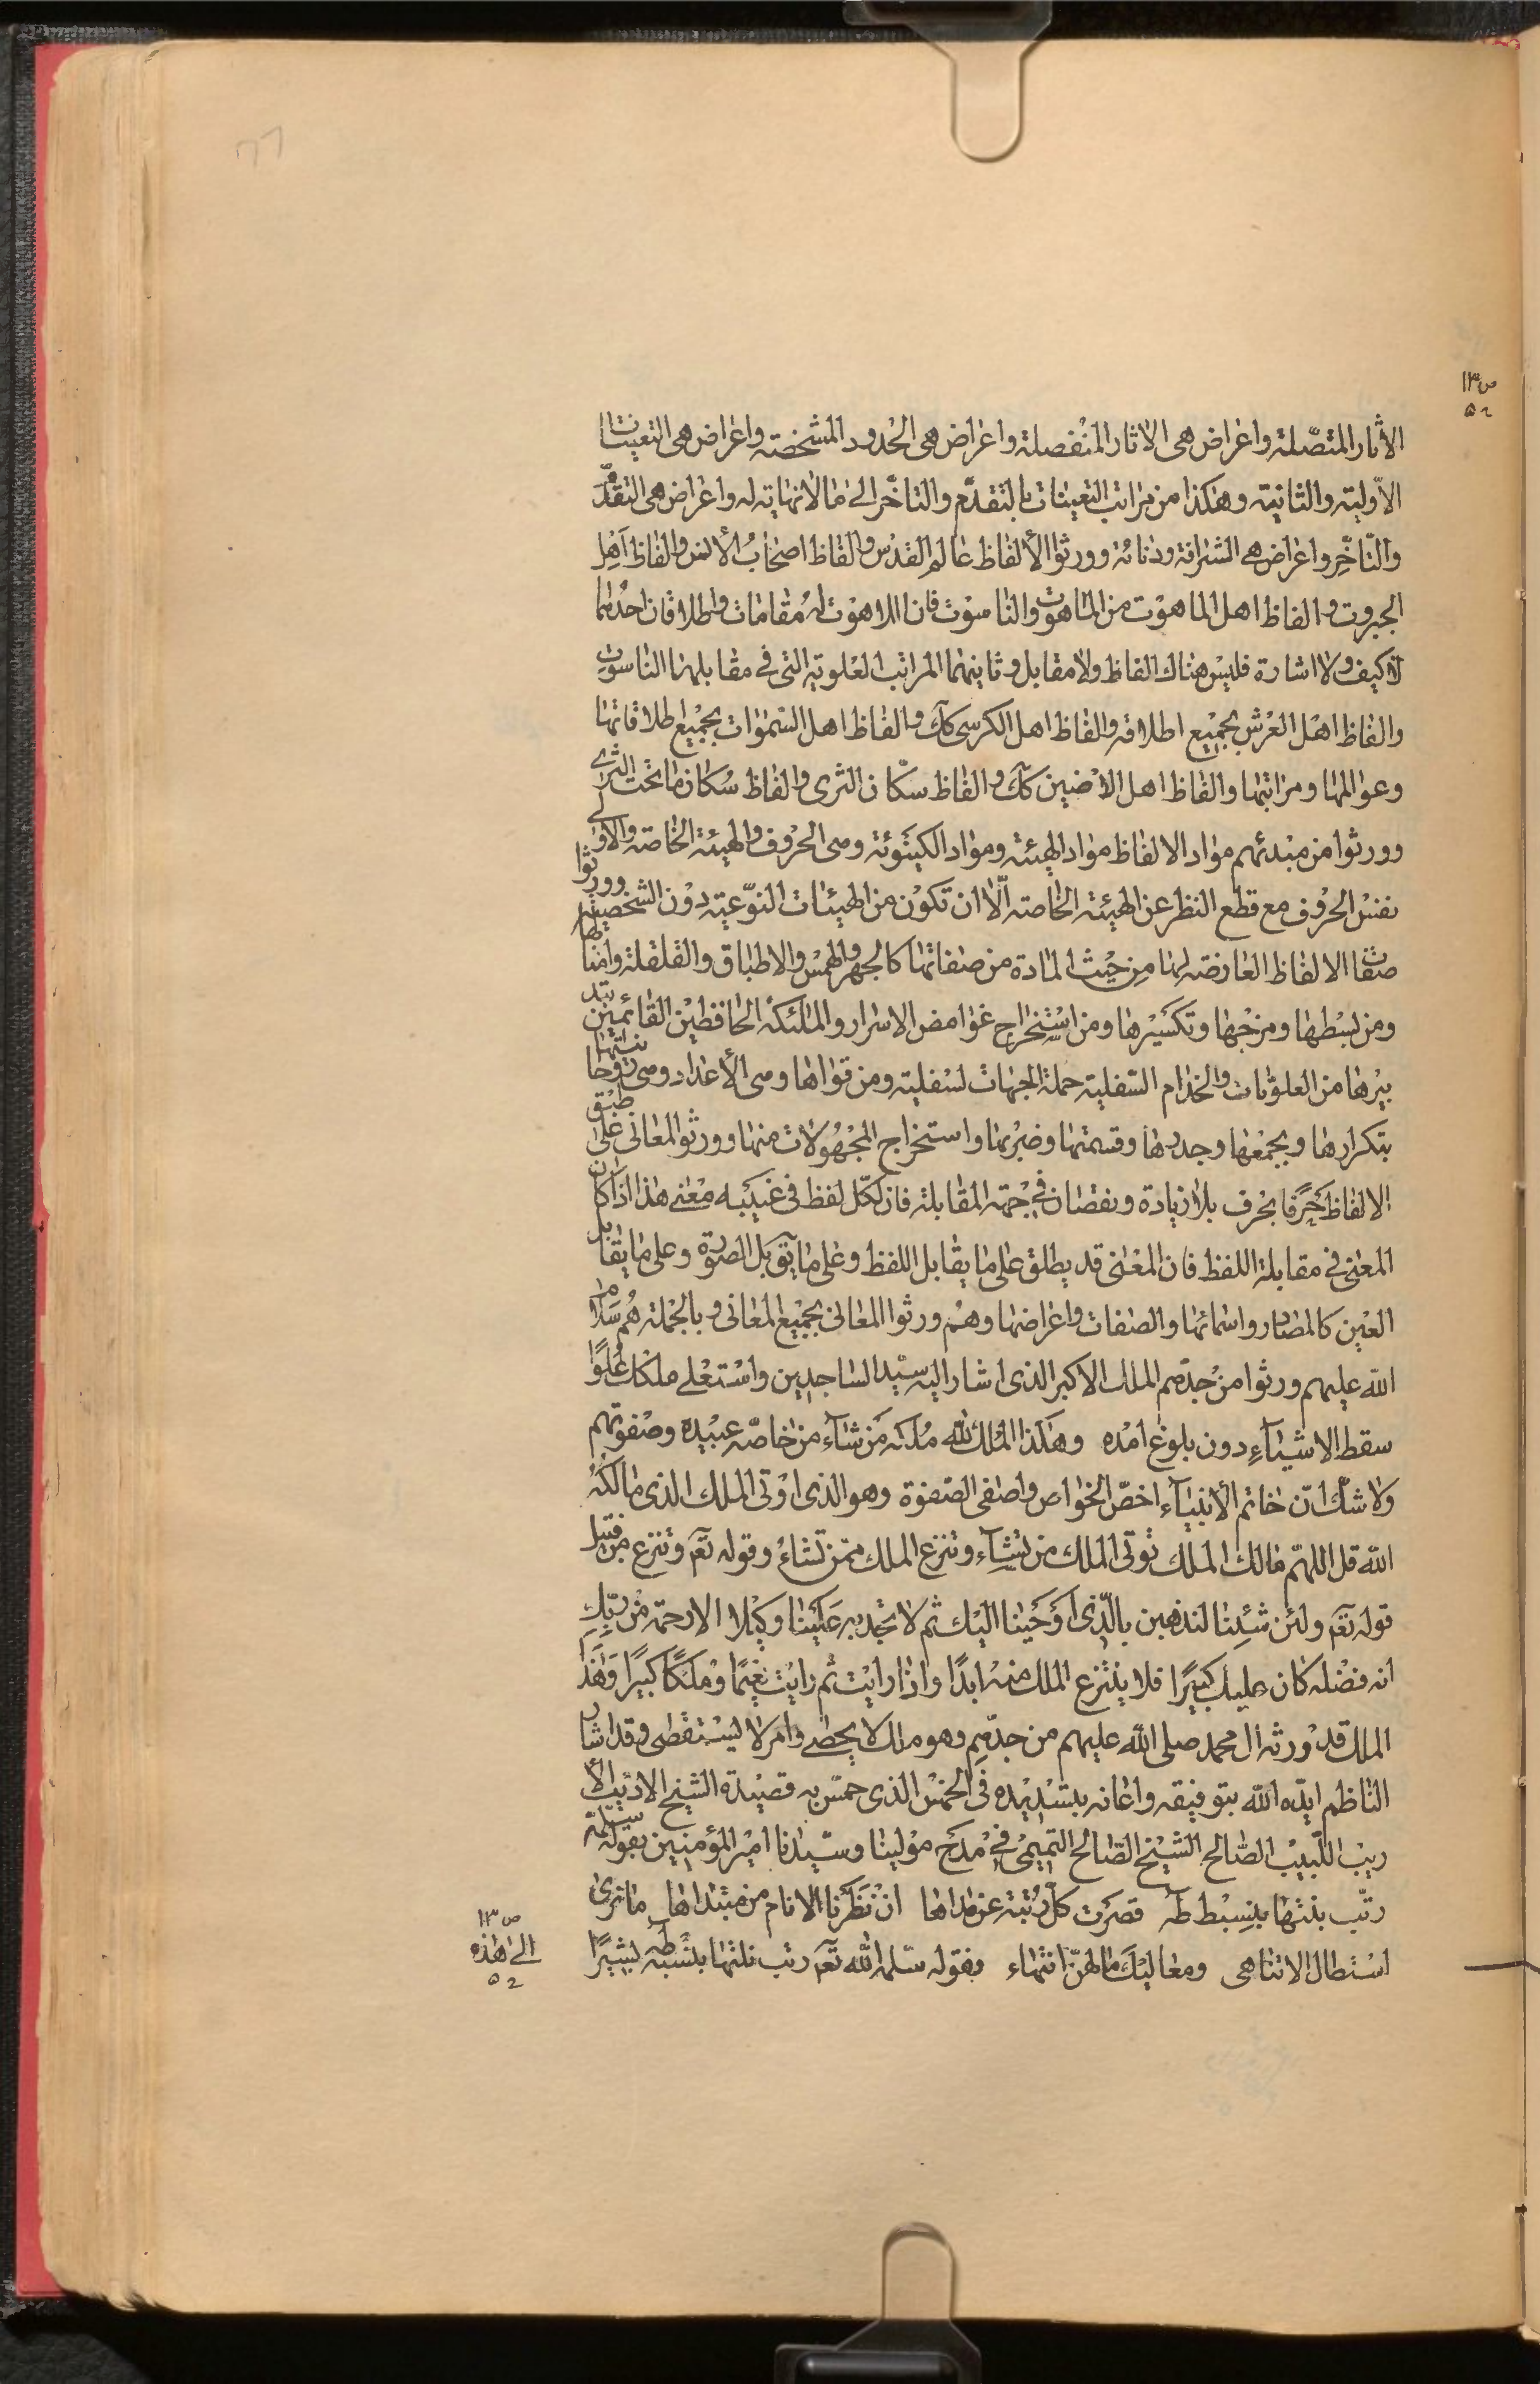 ص ١٣
٥٢
الاثار المتصلة واعراض هى الاثار المنفصلة واعراض هى الحدود المشخصة واعراض هى التعينات
الاولية والثانية وهكذا من مراتب التعينات بالتقدم والتاخر الى ما لا نهاية له واعراض هى التقدم
والتاخر واعراض هى الشرافة ودنائة وورثوا الالفاظ عالم القدس والفاظ اصحاب الانس والفاظ اهل
الجبروت والفاظ اهل الماهوت من الماهوت والناسوت فان اللاهوت له مقامات واطلاقان احدهما
لا كيف ولا اشارة فليس هناك الفاظ ولا مقابل وثانيهما المراتب العلوية التى فى مقابلها الناسوت
والفاظ اهل العرش بجميع اطلاقه والفاظ اهل الكرسى كك والفاظ اهل السموات بجميع طلاقاتها
وعوالمها ومراتبها والفاظ اهل الارضين كك والفاظ سكان الثرى والفاظ سكان ما تحت الثرى
وورثوا من مبدئهم مواد الالفاظ مواد الهيئة ومواد الكينونة ومى الحروف والهيئة الخاصة والاولى
نفس الحروف مع قطع النظر عن الهيئة الخاصة الا ان تكون من الهيئات النوعية دون الشخصية وورثوا
صفات الالفاظ العارضة لها من حيث المادة من صفاتها كالجهر والهمس والاطباق والقلقلة وامثالها
ومن بسطها ومزجها وتكسيرها ومن استخراج غوامض الاسرار والملئكة الحافظين القائمين بتد
بيرها من العلويات والخدام السفلية حملة الجهات لسفلية ومن قواها ومى الاعداد ومى روحانيتها
بتكرارها وبجمعها وجدرها وقسمتها وضربها واستخراج المجهولات منها وورثوا المعانى على طبق
الالفاظ حرفا بحرف بلا زيادة ونقصان فى جهة المقابلة فان لكل لفظ فى غيبه معنى هذا اذا كان
المعنى فى مقابلة اللفظ فان المعنى قد يطلق على ما يقابل اللفظ وعلى ما يقابل الصورة وعلى ما يقابل
العين كالمصادر واسمائها والصفات واعراضها وهم ورثوا المعانى بجميع المعانى وبالجملة هم سلام
الله عليهم ورثوا من جدهم الملك الاكبر الذى اشار اليه سيد الساجدين واستعلى ملكك علوا
سقط الاشياء دون بلوغ امده وهكذا الملك لله ملكه من شاء من خاصة عبيده وصفوتهم
ولا شك ان خاتم الانبياء اخص الخواص واصفى الصفوة وهو الذى اوتى الملك الذى مالكه
الله قل اللهم مالك الملك توتى الملك من تشاء وتنزع الملك ممن تشاء وقوله تعا وتنزع من قبيل
قوله تعا ولئن شئنا لنذهبن بالذى اوحينا اليك ثم لا تجد به علينا وكيلا الا رحمة من ربك
انه فضله كان عليك كبيرا فلا ينتزع الملك منه ابدا واذا رايت ثم رايت نعيما وملكا كبيرا وهذا
الملك قد ورثه ال محمد صلى الله عليهم من جدهم وهو ملك لا يحصى وامر لا يستقصى وقد اشار
الناظم ايده الله بتوفيقه واعانه بتسديده فى الخمس الذى خمس به قصيدة الشيخ الاديب الا
ريب اللبيب الصالح الشيخ الصالح التميمى فى مدح مولينا وسيدنا امير المؤمنين بقوله سلمه
رتب بنتها بنسبط طه قصرت كل رتبة عن مداها ان نظرنا الانام من مبتداها ما نرى
استطال الا تناهى ومعاليك مالهن انتهاء وبقوله سلمه الله تعا رتب نلتها بشبطه بشيرا
ص ١٣
الى هذه
٥٢